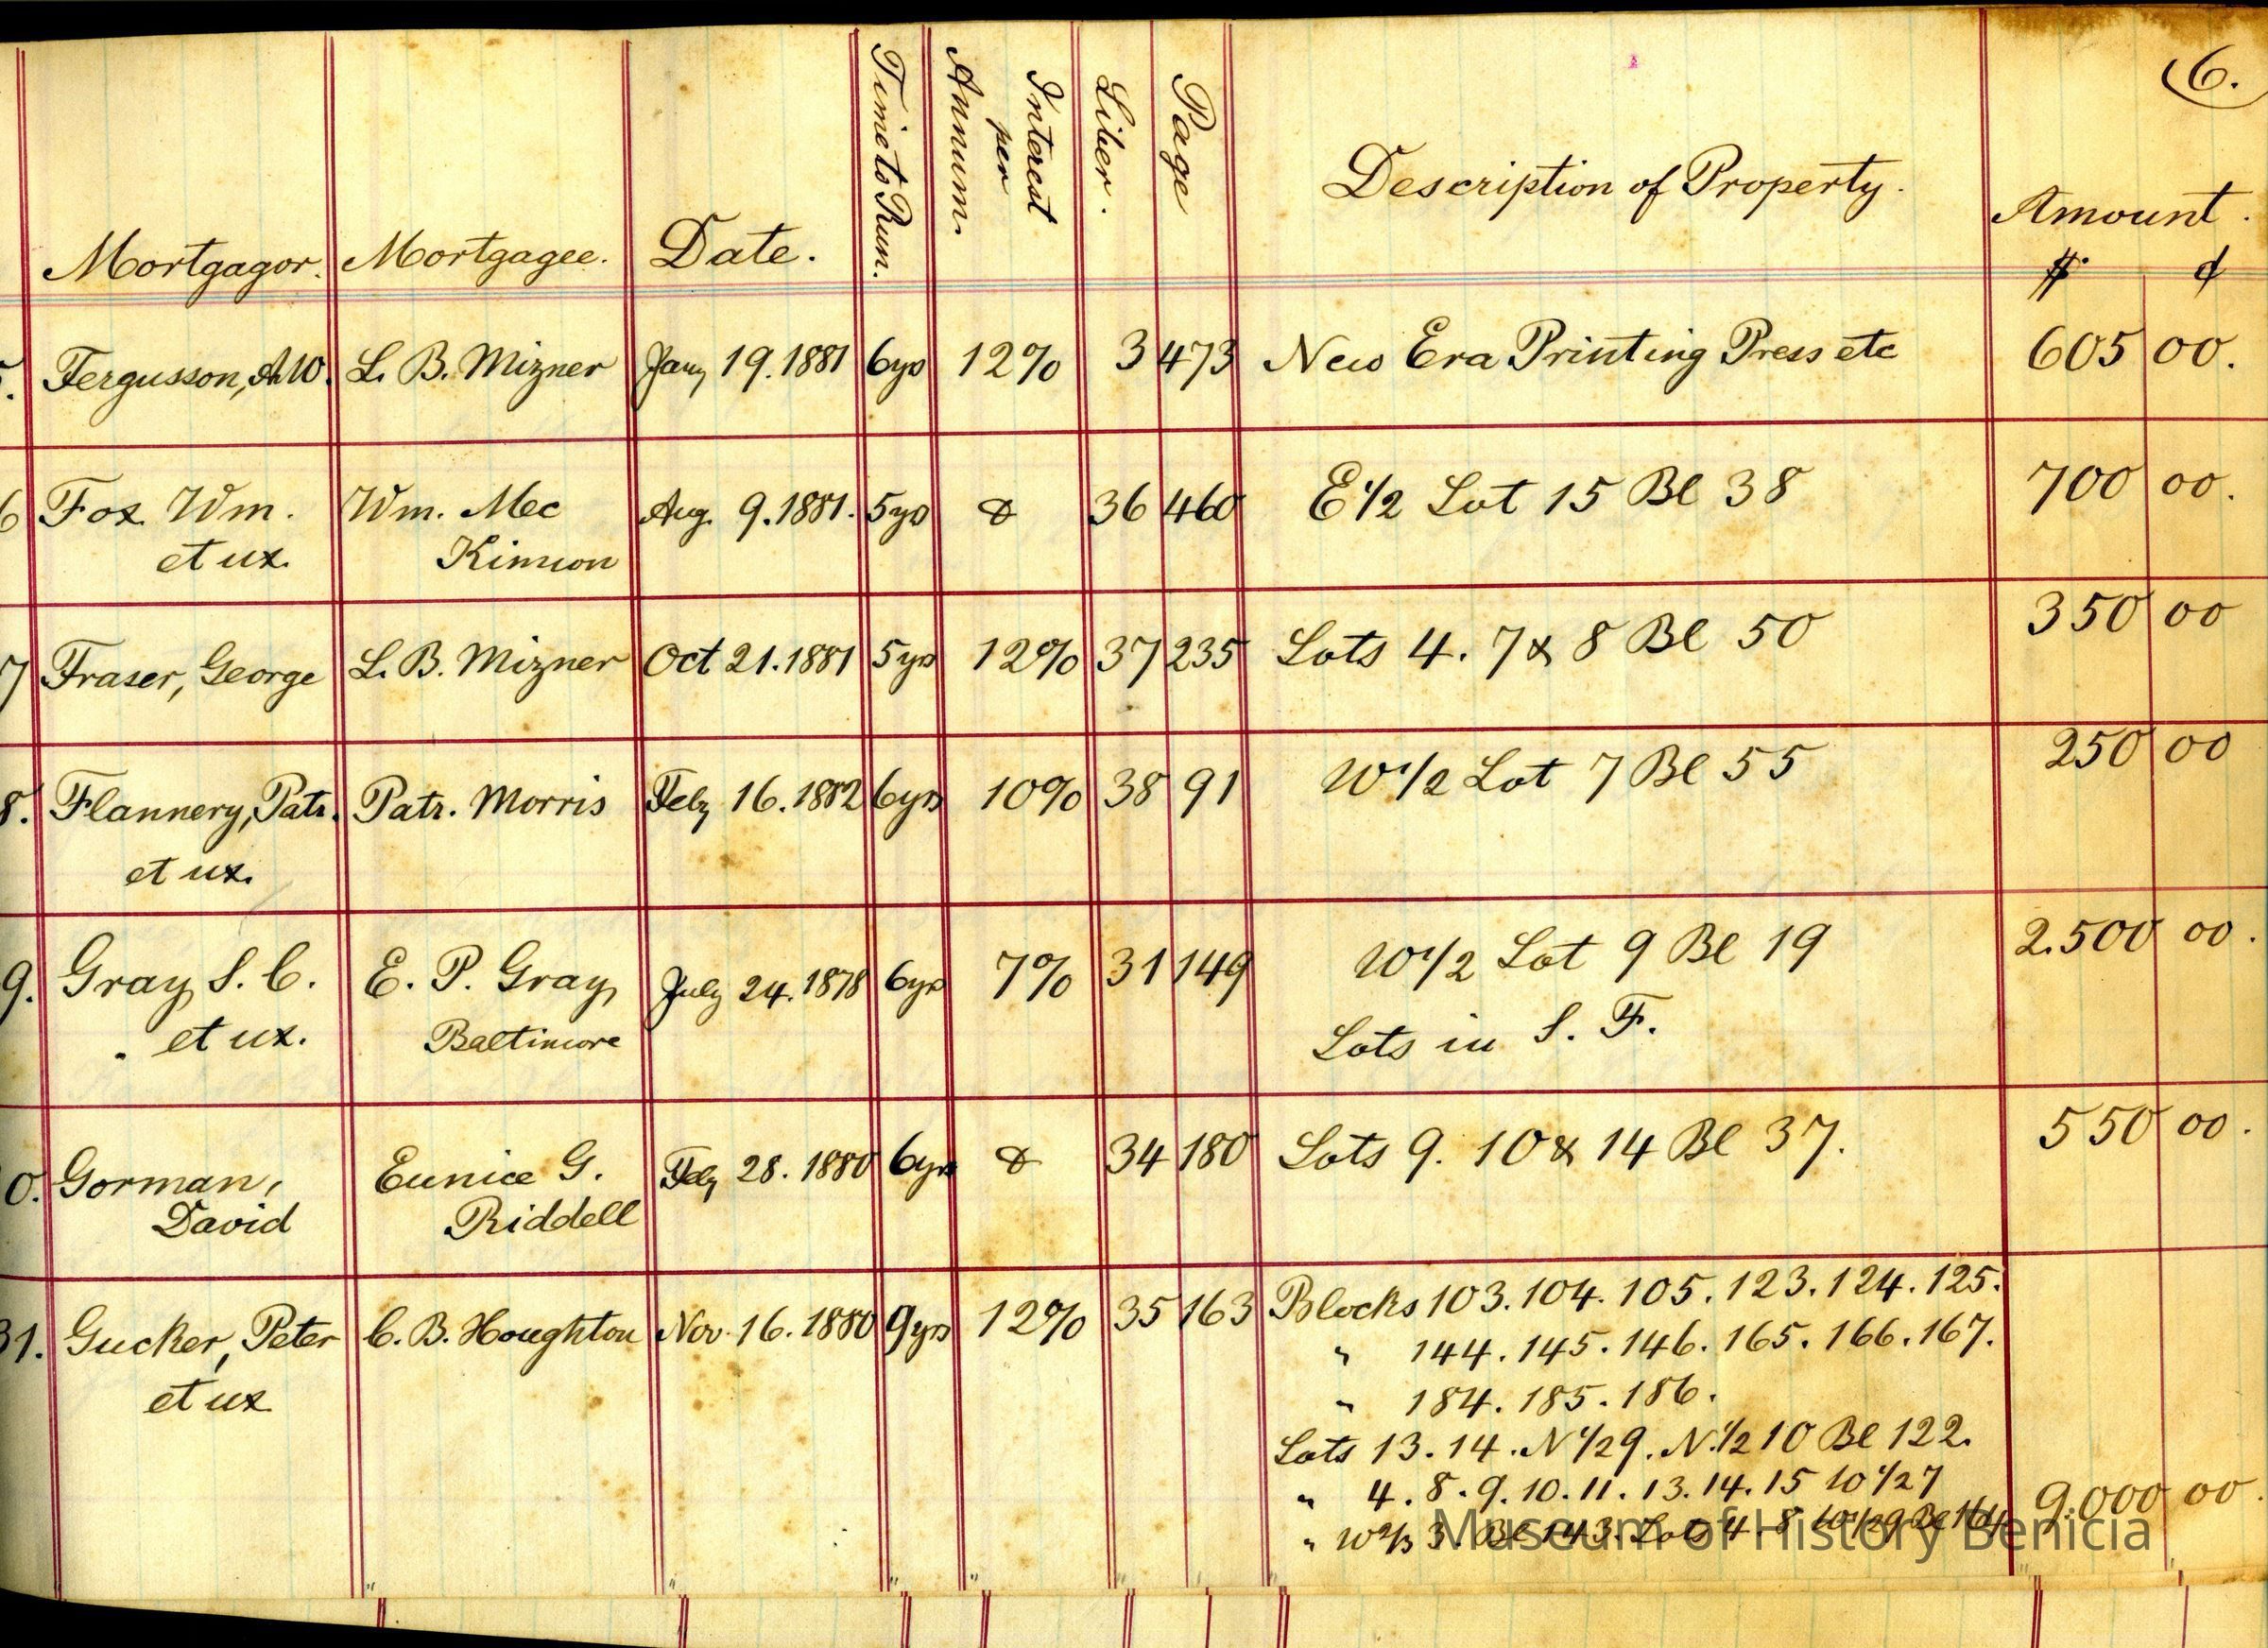 6.
Mortgagor. Mortgagee. Date. Time to Run. Interest per Annum. Liber. Page Description of Property. Amount.
$ ¢
5. Fergusson, A.W. L. B. Mizner Jany 19. 1881 6yrs 12% 3 473 New Era Printing Press etc 605 00.
6 Fox Wm. Wm. Mec Aug. 9. 1881. 5yrs 36 460 E 1/2 Lot 15 Bl 38 700 00.
et ux. Kinnon
7 Fraser, George L. B. Mizner Oct 21. 1881 5yrs 12% 37 235 Lots 4. 7 & 8 Bl 50 350 00
8. Flannery, Patr. Patr. Morris Feby 16. 1882 6yrs 10% 38 91 W 1/2 Lot 7 Bl 55 250 00
et ux.
9. Gray S. C. E. P. Gray July 24. 1878 6yrs 7% 31 149 W 1/2 Lot 9 Bl 19 2.500 00.
et ux. Baltimore Lots in S. F.
0. Gorman, Eunice G. Feby 28. 1880 6yrs 34 180 Lots 9. 10 & 14 Bl 37. 550 00.
David Riddell
31. Gucker, Peter C. B. Houghton Nov. 16. 1880 9yrs 12% 35 163 Blocks 103. 104. 105. 123. 124. 125.
et ux " 144. 145. 146. 165. 166. 167.
" 184. 185. 186.
Lots 13. 14. N 1/2 9. N. 1/2 10 Bl 122.
" 4. 8. 9. 10. 11. 13. 14. 15 W 1/2 7
" W 2/3 3. Bl 143. Lots 4. 8 W 1/2 9 Bl 164 9.000 00.
Museum of History Benicia